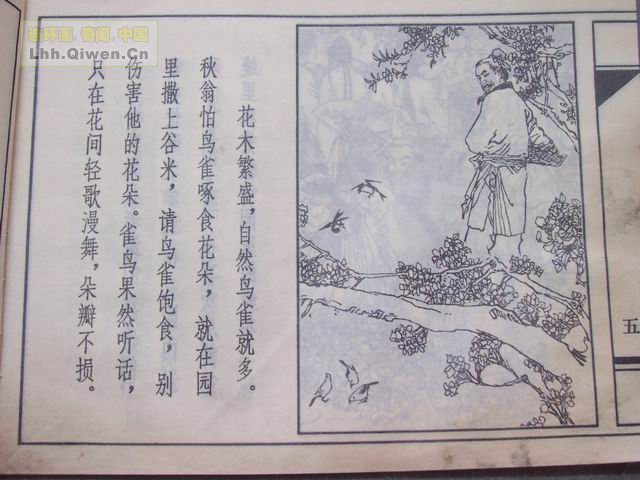 连环画.奇闻.中国
Lhh.Qiwen.Cn
花木繁盛，自然鸟雀就多。
秋翁怕鸟雀啄食花朵，就在园
里撒上谷米，请鸟雀饱食，别
伤害他的花朵。雀鸟果然听话，
只在花间轻歌漫舞，朵瓣不损。
五